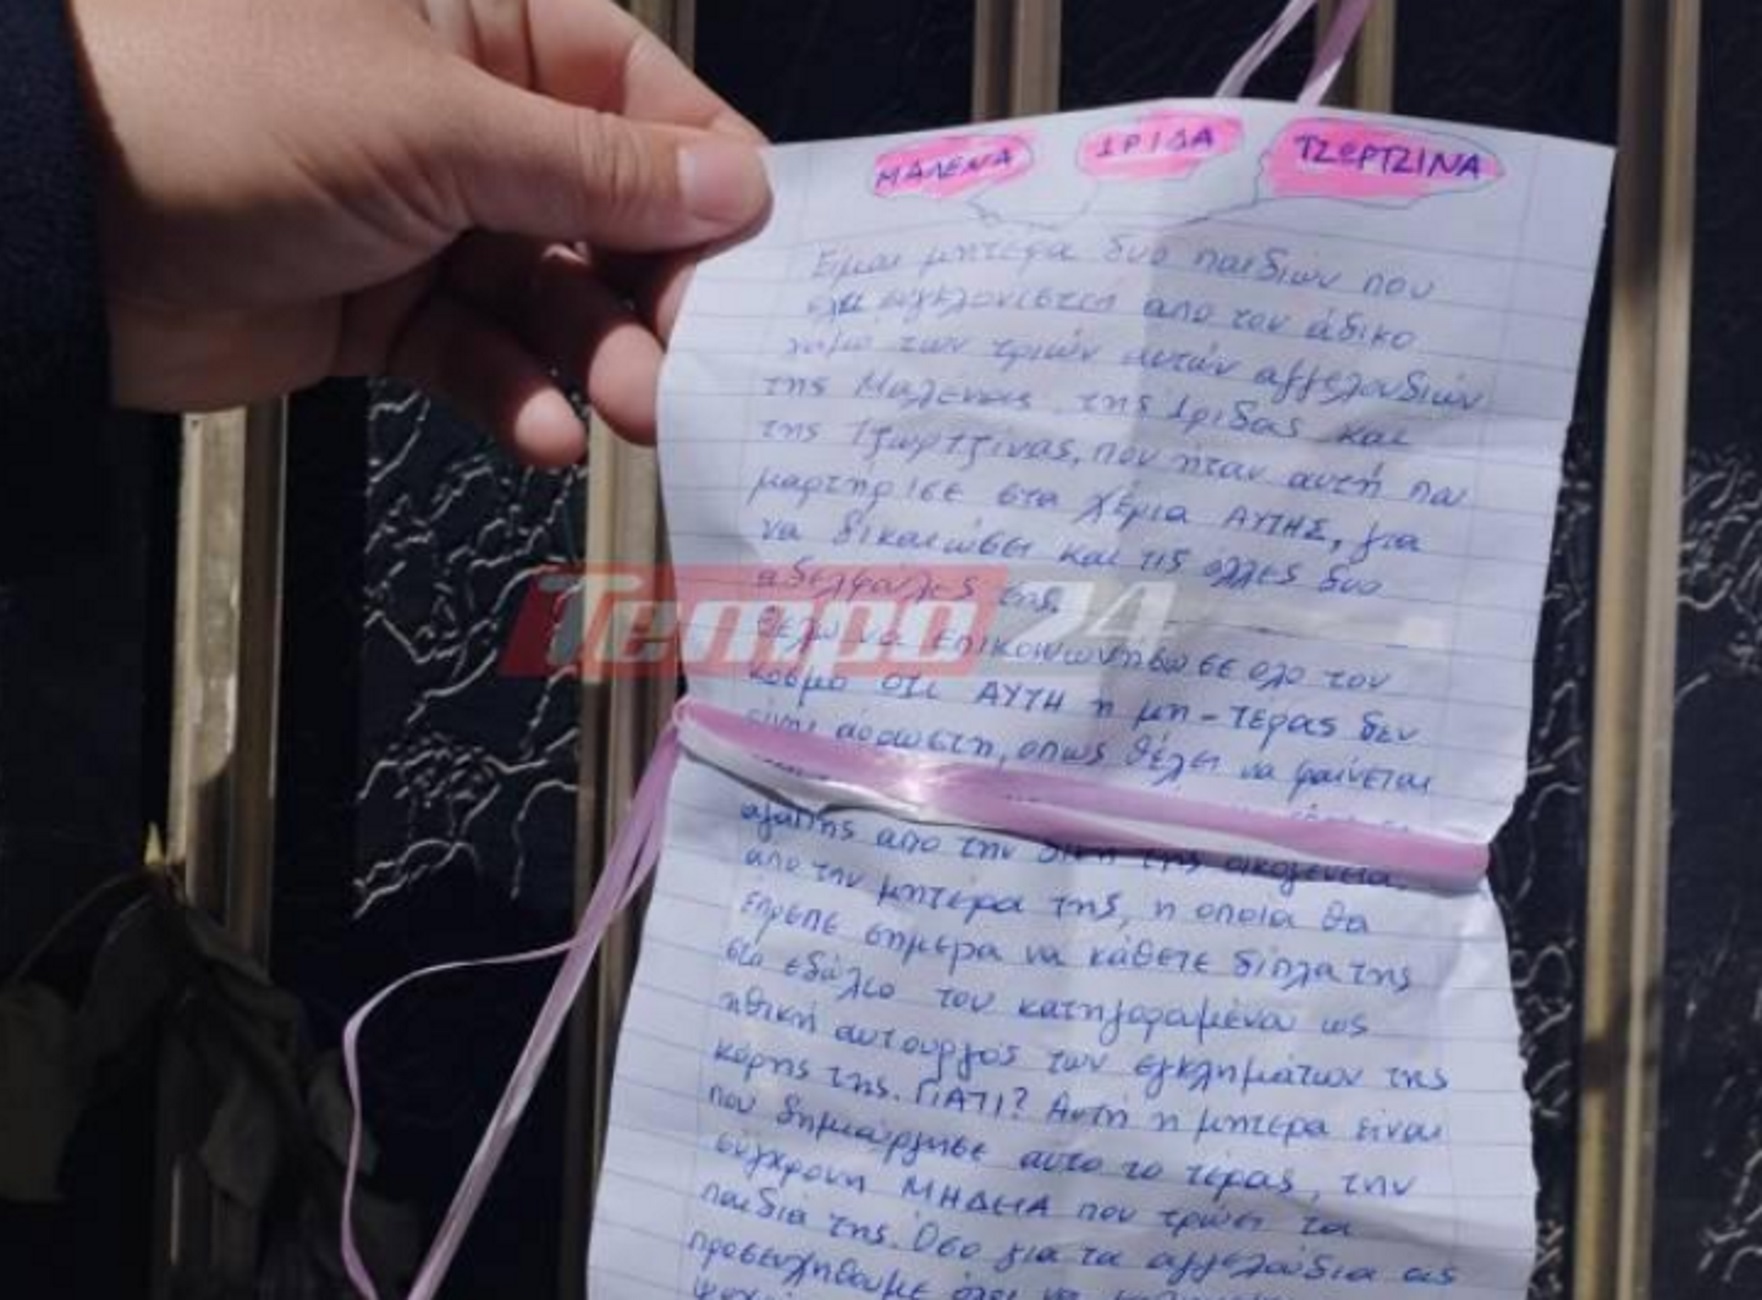 ΜΑΛΕΝΑ ΙΡΙΔΑ ΤΖΩΡΤΖΙΝΑ
Είμαι μητέρα δυο παιδιών που
έχω συγκλονιστεί απο τον άδικο
χαμο των τριών αυτών αγγελουδιών
της Μαλενας, της Ιριδας και
της Τζωρτζινας, που ήταν αυτή που
μαρτήρισε στα χέρια ΑΥΤΗΣ, για
να δικαιώσει και τις άλλες δυο
αδελφούλες της.
Θελω να επικοινωνήσω σε ολο τον
κοσμο οτι ΑΥΤΗ η μη-τέρας δεν
είναι άρρωστη, οπως θέλει να φαίνεται
αγαπης απο την δικη της οικογένεια,
απο την μητερα της, η οποία θα
επρεπε σημερα να κάθετε δίπλα της
στο εδώλιο του κατηγοραμένου ως
ηθική αυτουργός των εγκλημάτων της
κόρης της. ΓΙΑΤΙ? Αυτή η μητερα είναι
που δημιούργησε αυτο το τέρας, την
σύγχρονη ΜΗΔΕΙΑ που τρώει τα
παιδιά της. Οσο για τα αγγελούδια ας
προσευχηθουμε όλοι να
Tempo 24